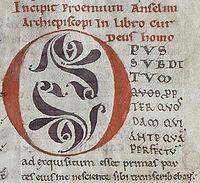 Incipit Prooemium Anselmi
Archiepiscopi In libro Cur
deus homo
OPUS
SUBDI
TUM
QUOD PP
TER QUOS
DAM QUI
ANTEQUA
PERFECTU
ad exquisitum esset primas par
tes eius me nesciente sibi transcribebant